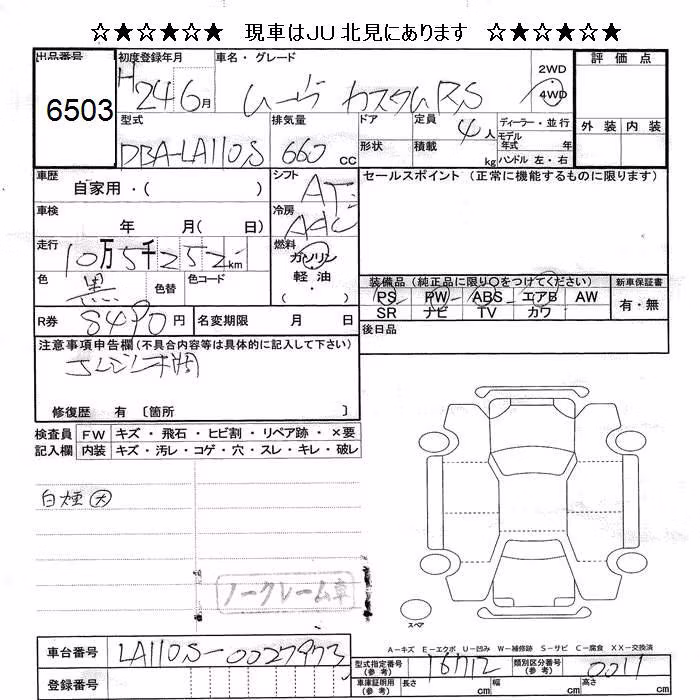 ☆★☆★☆★ 現車はJU北見にあります ☆★☆★☆★
出品番号 初度登録年月 車名・グレード 評価点
6503 H24 6月 ムーヴ カスタムRS 2WD 4WD
外装 内装
型式 排気量 ドア 定員 4人 ディーラー・並行
DBA-LA110S 660cc 形状 積載 kg モデル年式 年
ハンドル 左・右
車歴 自家用・( ) シフト AT
セールスポイント (正常に機能するものに限ります)
車検 年 月( 日) 冷房 AAC
走行 10万5千252km 燃料 ガソリン
軽油
( )
色 黒 色替 色コード
装備品 (純正品に限り○をつけてください) 新車保証書
PS PW ABS エアB AW 有・無
SR ナビ TV カワ
R券 8490円 名変期限 月 日
後日品
注意事項申告欄(不具合内容等は具体的に記入して下さい)
修復歴 有 〔箇所 〕
検査員 FW キズ・飛石・ヒビ割・リペア跡・×要
記入欄 内装 キズ・汚レ・コゲ・穴・スレ・キレ・破レ
白煙 大
ノークレーム車
スペア
A-キズ E-エクボ U-凹み W-補修跡 S-サビ C-腐食 XX-交換済
車台番号 LA110S-0027973
型式指定番号(参考) 16712 類別区分番号(参考) 0011
登録番号
車庫証明用(参考) 長さ cm 幅 cm 高さ cm